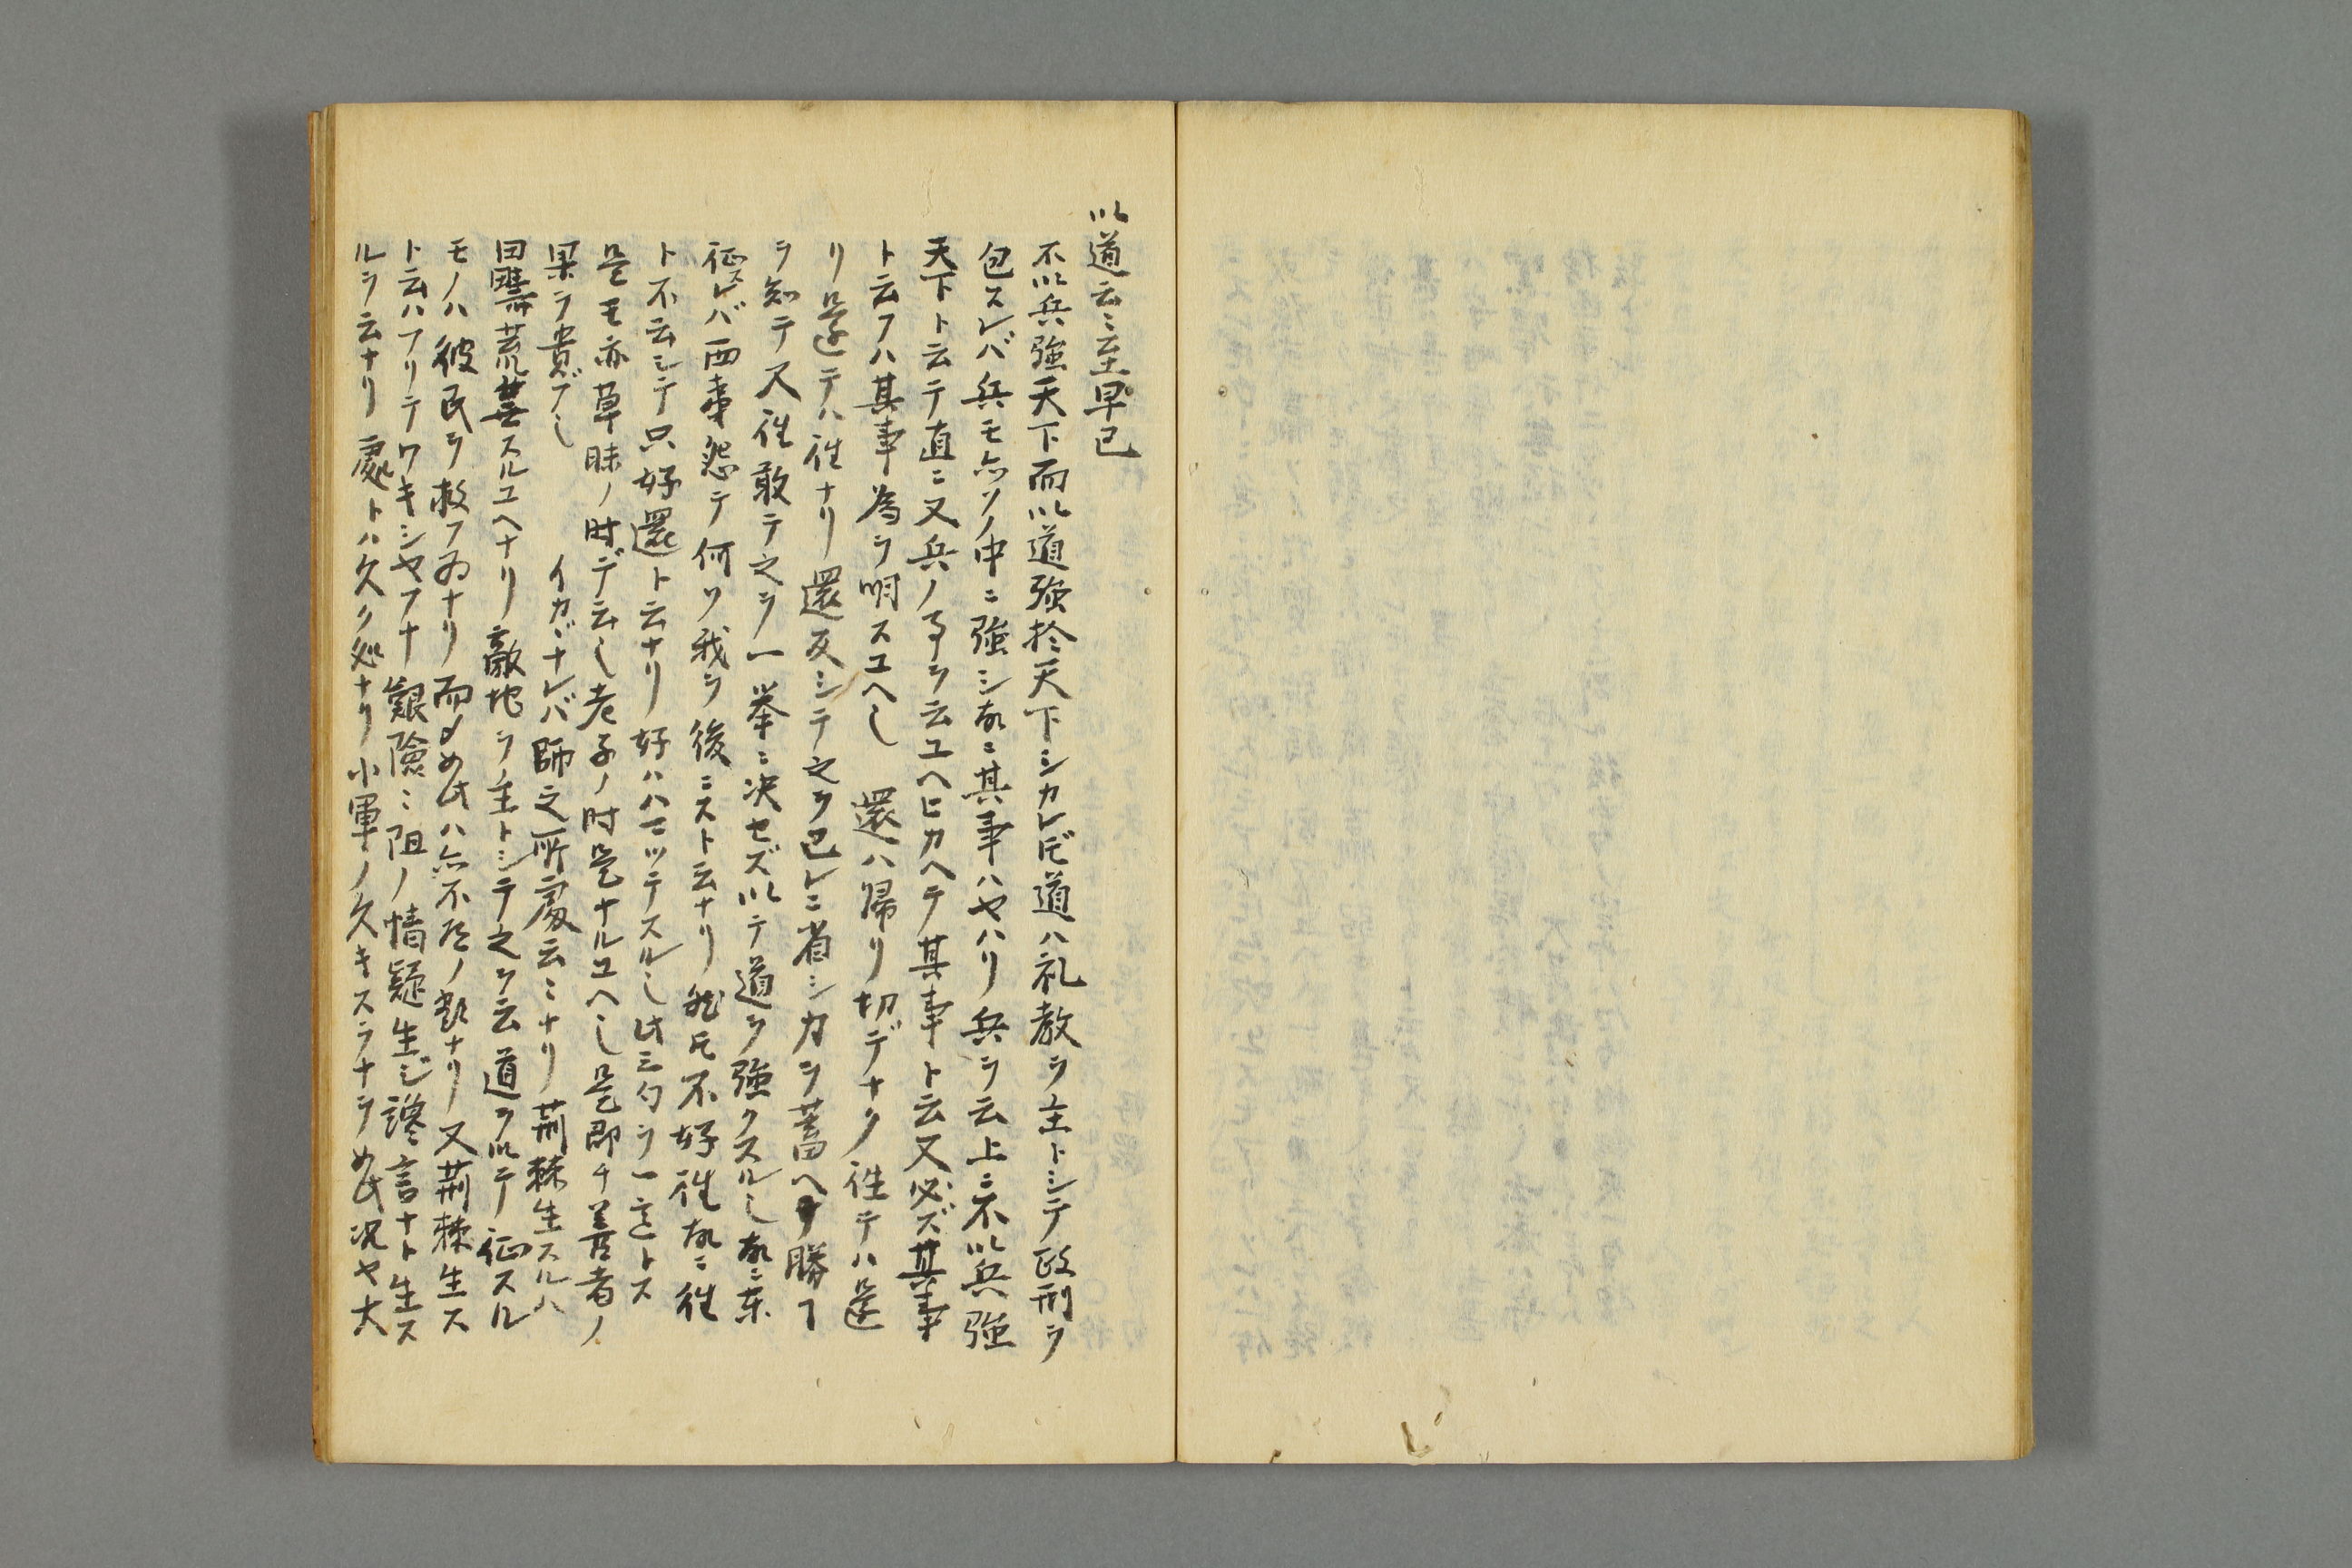 以道云〻至早已
不以兵強天下而以道強於天下シカレ𪜈道ハ礼教ヲ主トシテ政刑ヲ
包スレバ兵モ亦ソノ中ニ強シ故ニ其事ハヤハリ兵ヲ云上ニ不以兵強
天下ト云テ直ニ又兵ノ事ヲ云ユヘヒカヘテ其事ト云又必ズ其事
ト云フハ其事為ヲ明スユヘ乄 還ハ帰リ切デナク往テハ還
リ還テハ往ナリ還反シテ之ヲ己レニ省シカヲ蓄ヘヲ勝ヿ
ヲ知テ又往敢テ之ヲ一挙ニ决セズ以テ道ヲ強クスル也故ニ東
征スレバ西夷怨テ何ソ我ヲ後ニスト云ナリ然𪜈不好往故ニ往
ト不云シテ只好還ト云ナリ好ハハマツテスル也此三句ヲ一意トス
是モ亦草昧ノ时デ云也老子ノ时是ナルユヘ也是即チ善者ノ
果ヲ貴ブ也 イカヾナレバ師之所處云〻ナリ荊棘生スルハ
田疇荒蕪スルユヘナリ敵地ヲ主トシテ之ヲ云道ヲ以テ征スル
モノハ彼民ヲ救フ為ナリ而メ如此ハ亦不及ノ類ナリ又荊棘生ス
ト云ハフリテワキシヤフナ艱險ニ阻ノ情疑生ジ讒言ナト生ス
ルヲ云ナリ處トハ久ク処ナリ小軍ノ久キスラナヲ如此况ヤ大